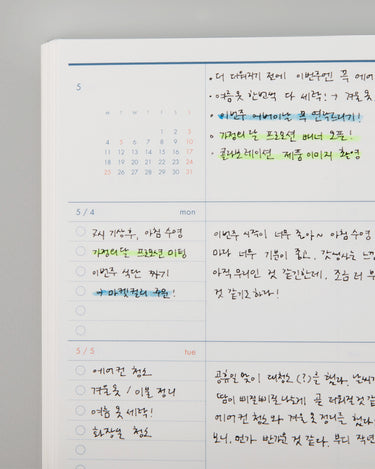 5
M T W T F S S
1 2 3
4 5 6 7 8 9 10
11 12 13 14 15 16 17
18 19 20 21 22 23 24
25 26 27 28 29 30 31
• 더 더워지기 전에 이번주엔 꼭 에어
• 여름 옷 한번씩 다 세탁! → 겨울옷
• 이번주 어버이날 꼭 연락드리기!
• 가정의달 프로모션 배너 오픈!
• 콜라보레이션 제품 이미지 촬영
5 / 4 mon
7시 기상후, 아침 수영
가정의달 프로모션 미팅
이번주 식단 짜기
→ 마켓컬리 주문!
이번주 시작이 너무 좋아~ 아침 수영
마다 너무 기분이 좋고, 갓생사는 느낌
아직 무리인 것 같긴한데, 조금 더 부
것 같기도하다!
5 / 5 tue
에어컨 청소
겨울옷 / 이불 정리
여름 옷 세탁!
화장실 청소
공휴일 맞이 대청소(?)를 했다. 날씨가
땀이 삐질삐질나는게 곧 더워질것 같
에어컨 청소와 겨울옷 정리를 했다.
보니, 먼가 반가운 것 같다. 무디 작년